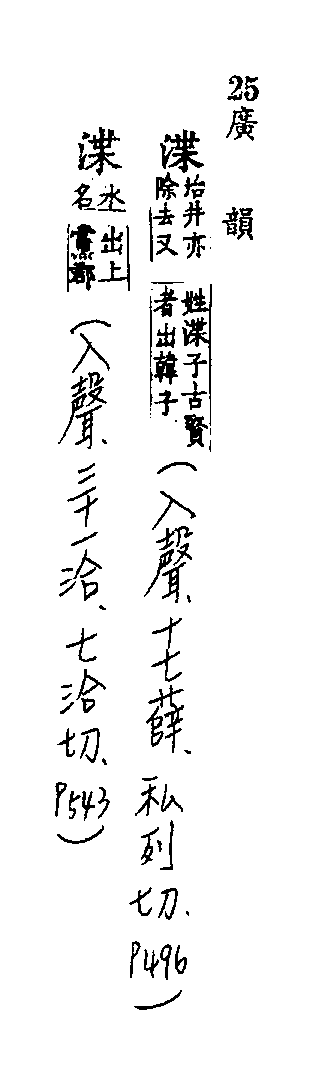 25廣韻
渫治井亦除去又姓渫子古賢者出韓子(入聲、十七薛、私列切、P496)
渫水名出上黨郡(入聲、三十一洽、七洽切、P543)